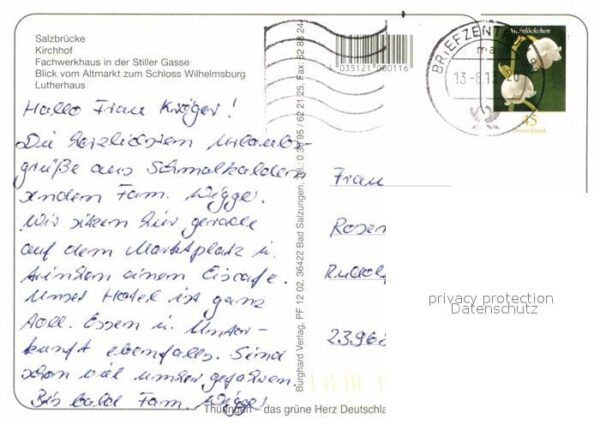 Salzbrücke
Kirchhof
Fachwerkhaus in der Stiller Gasse
Blick vom Altmarkt zum Schloss Wilhelmsburg
Lutherhaus
Hallo Frau Krüger!
Die herzlichsten Urlaubs-
grüße aus Schmalkalden
senden Fam. Wigge.
Wir sitzen hier gerade
auf dem Marktplatz u.
trinken einen Eiscafe.
Unser Hotel ist ganz
toll. Essen u. Unter-
kunft ebenfalls. Sind
schon viel umher gefahren.
Bis bald Fam. Wigge
Thüringen - das grüne Herz Deutschla
Burghard Verlag, PF 12 02, 36422 Bad Salzungen, Tel.: 0 36 95 / 62 21 25, Fax: 62 88 24
4 035121 000116
BRIEFZENT
13-6.1
Maiglöckchen
45
Deutschland
Frau
Rosen
Rudolp
2396
privacy protection
Datenschutz